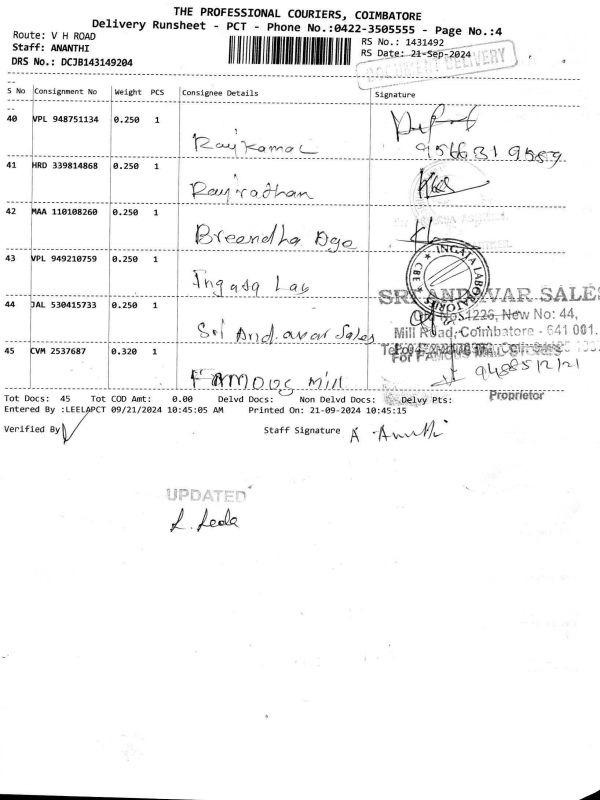 THE PROFESSIONAL COURIERS, COIMBATORE
Delivery Runsheet - PCT - Phone No.:0422-3505555 - Page No.:4
Route: V H ROAD
RS No.: 1431492
Staff: ANANTHI
RS Date: 21-Sep-2024
DOCUMENT DELIVERY
DRS No.: DCJB143149204
S No Consignment No Weight PCS Consignee Details Signature
40 VPL 948751134 0.250 1
Rajkamal
9566319559
41 HRD 339814868 0.250 1
Rajirathan
42 MAA 110108260 0.250 1
Breendha Age
43 VPL 949210759 0.250 1
Ingaja Lab
INGAJA LABORATORIES
CBE
44 JAL 530415733 0.250 1
SRI ANDAVAR SALES
1226, New No: 44,
Mill Road, Coimbatore - 641 001.
Sri Andavar Sales
45 CVM 2537687 0.320 1
For FAMOUS MILL STORES
FAMOUS Mill
Proprietor
Tot Docs: 45 Tot COD Amt: 0.00 Delvd Docs: Non Delvd Docs: Delvy Pts:
Entered By :LEELAPCT 09/21/2024 10:45:05 AM Printed On: 21-09-2024 10:45:15
Verified By
Staff Signature
UPDATED